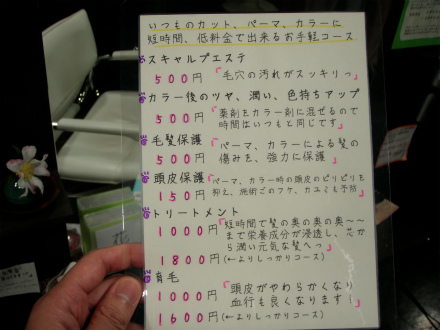 いつものカット、パーマ、カラーに
短時間、低料金で出来るお手軽コース
スキャルプエステ
500円「毛穴の汚れがスッキリっ」
カラー後のツヤ、潤い、色持ちアップ
500円「薬剤をカラー剤に混ぜるので
時間はいつもと同じです」
毛髪保護「パーマ、カラーによる髪の
500円 傷みを、強力に保護」
頭皮保護「パーマ、カラー時の頭皮のピリピリを
150円 抑え、施術後のフケ、カユミも予防」
トリートメント
1000円「短時間で髪の奥の奥の奥〜〜
まで栄養成分が浸透し、芯か
ら潤い元気な髪へっ」
1800円(←よりしっかりコース)
育毛
1000円「頭皮がやわらかくなり
血行も良くなります!」
1600円(←よりしっかりコース)
花